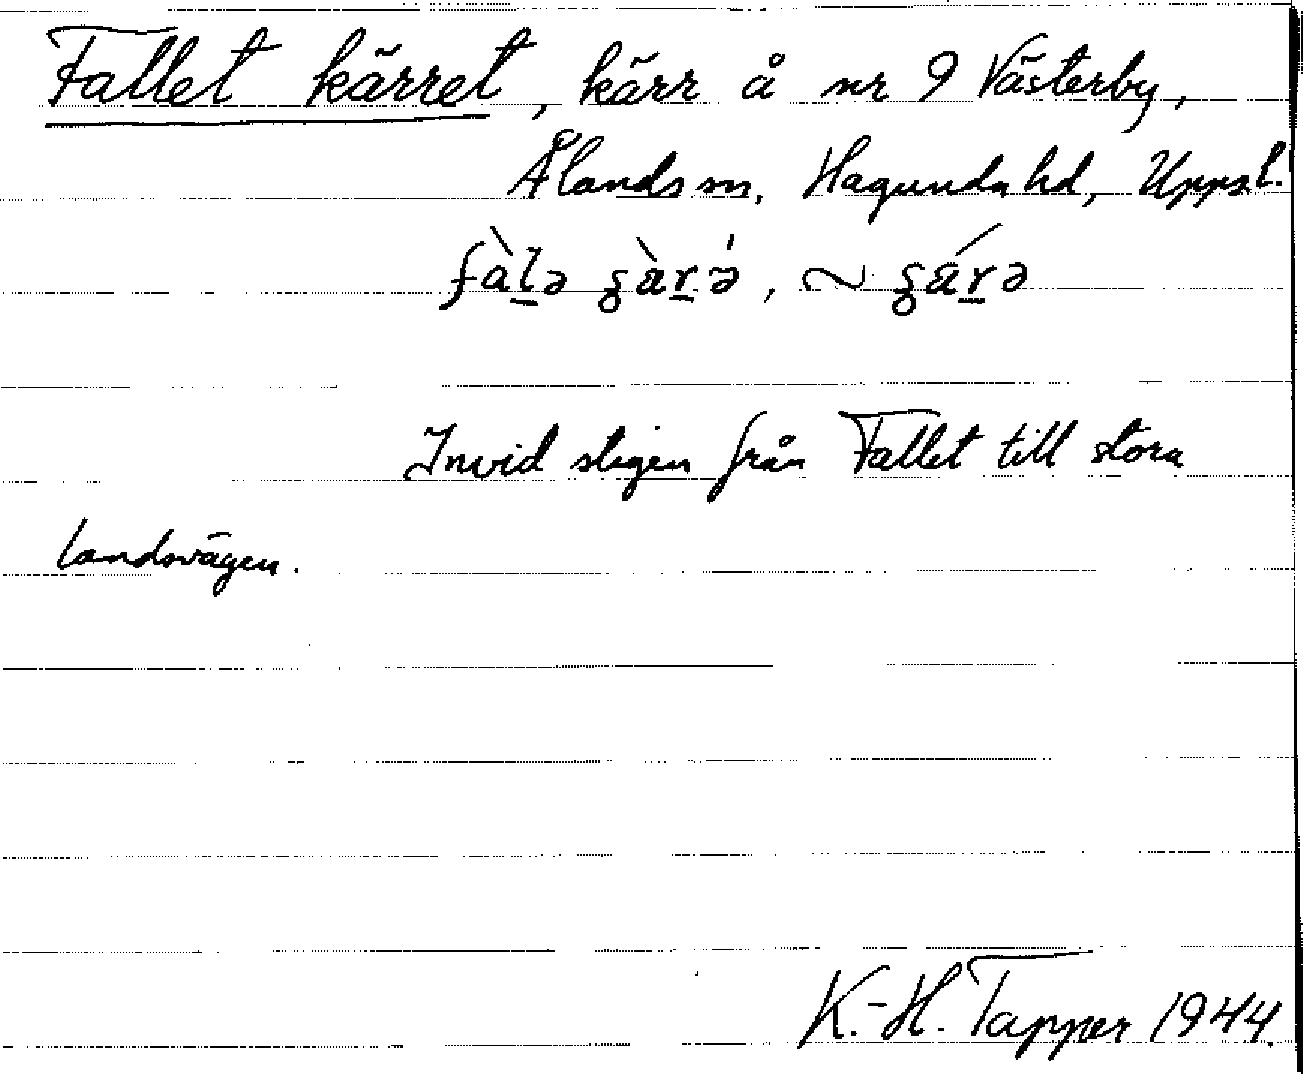 Fallet kärret, kärr å nr 9 Västerby,
Ålands sn, Hagunda hd, Uppsl.
fàl̲ə ʂàr̲ə́, ~ ʂár̲ə
Invid stigen från Fallet till stora
landsvägen.
K.-H. Tapper 1944.